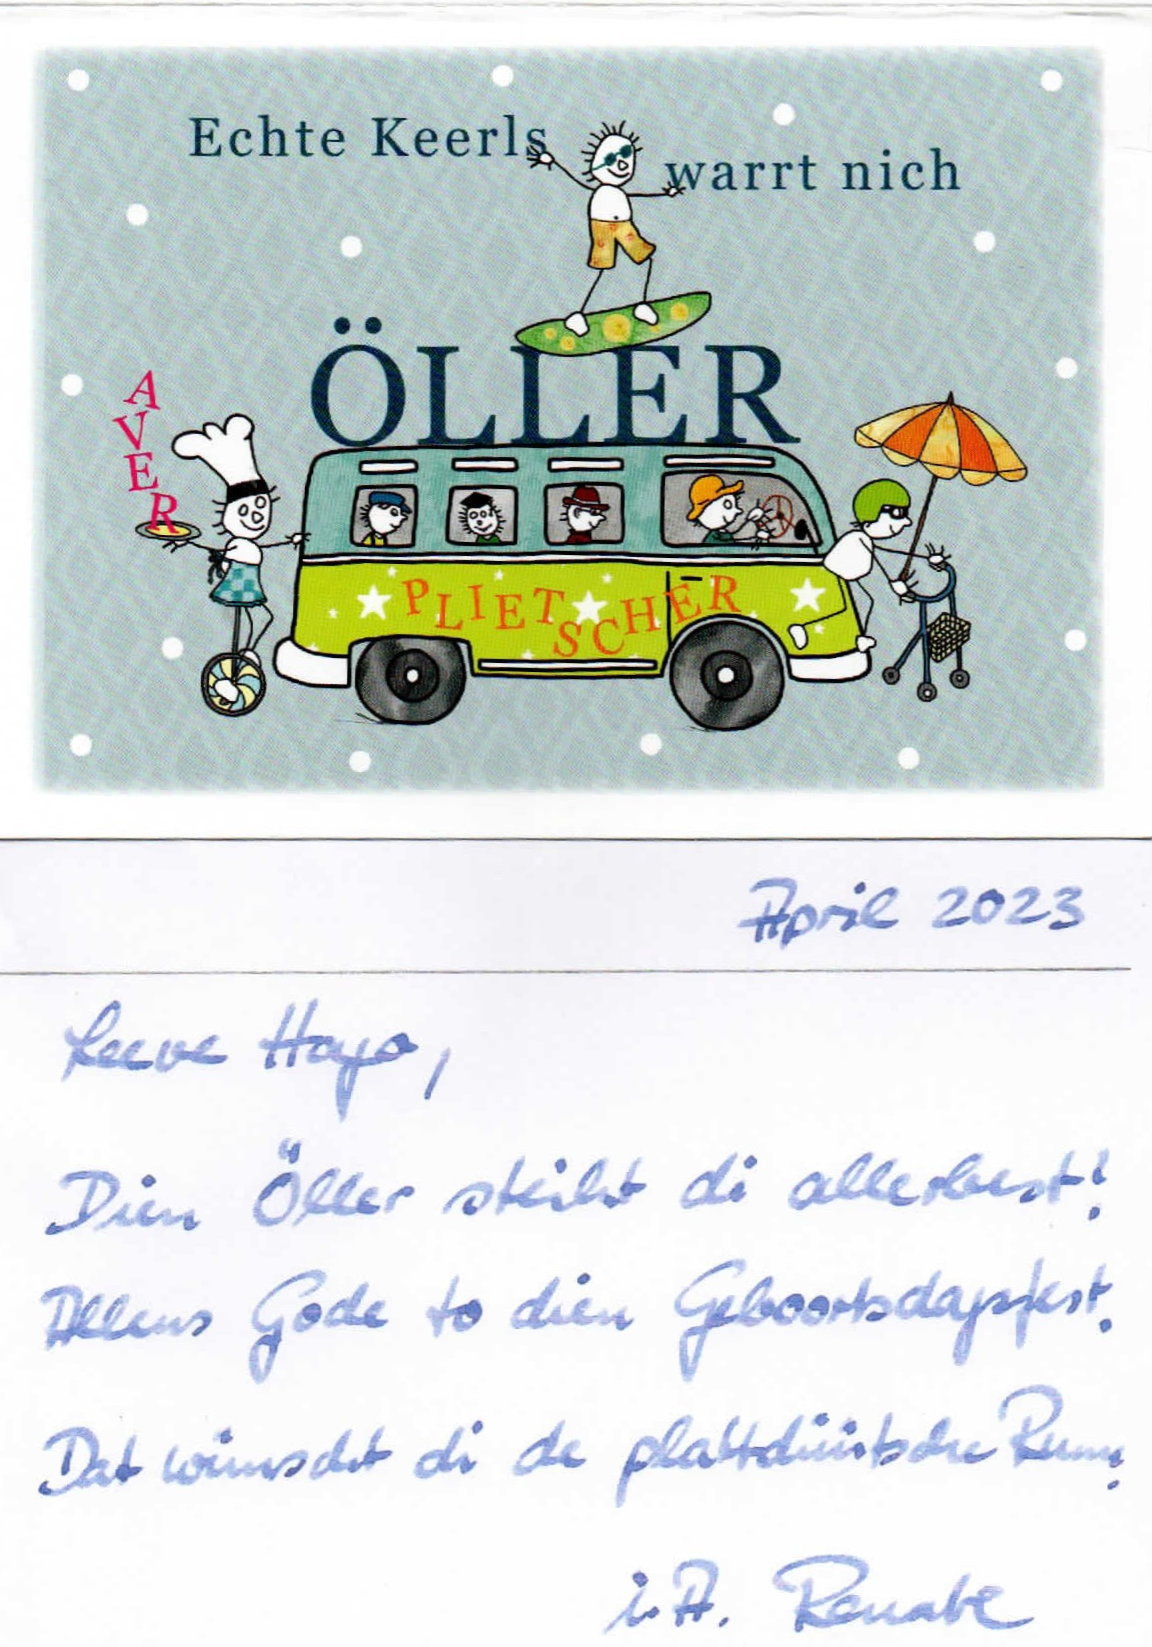 Echte Keerls
warrt nich
ÖLLER
AVER
PLIETSCHER
April 2023
Leeve Hayo,
Dien Öller steiht di allerbest!
Allens Gode to dien Geboortsdagsfest.
Dat wünscht di de plattdüütsche Runn.
i.A. Renate